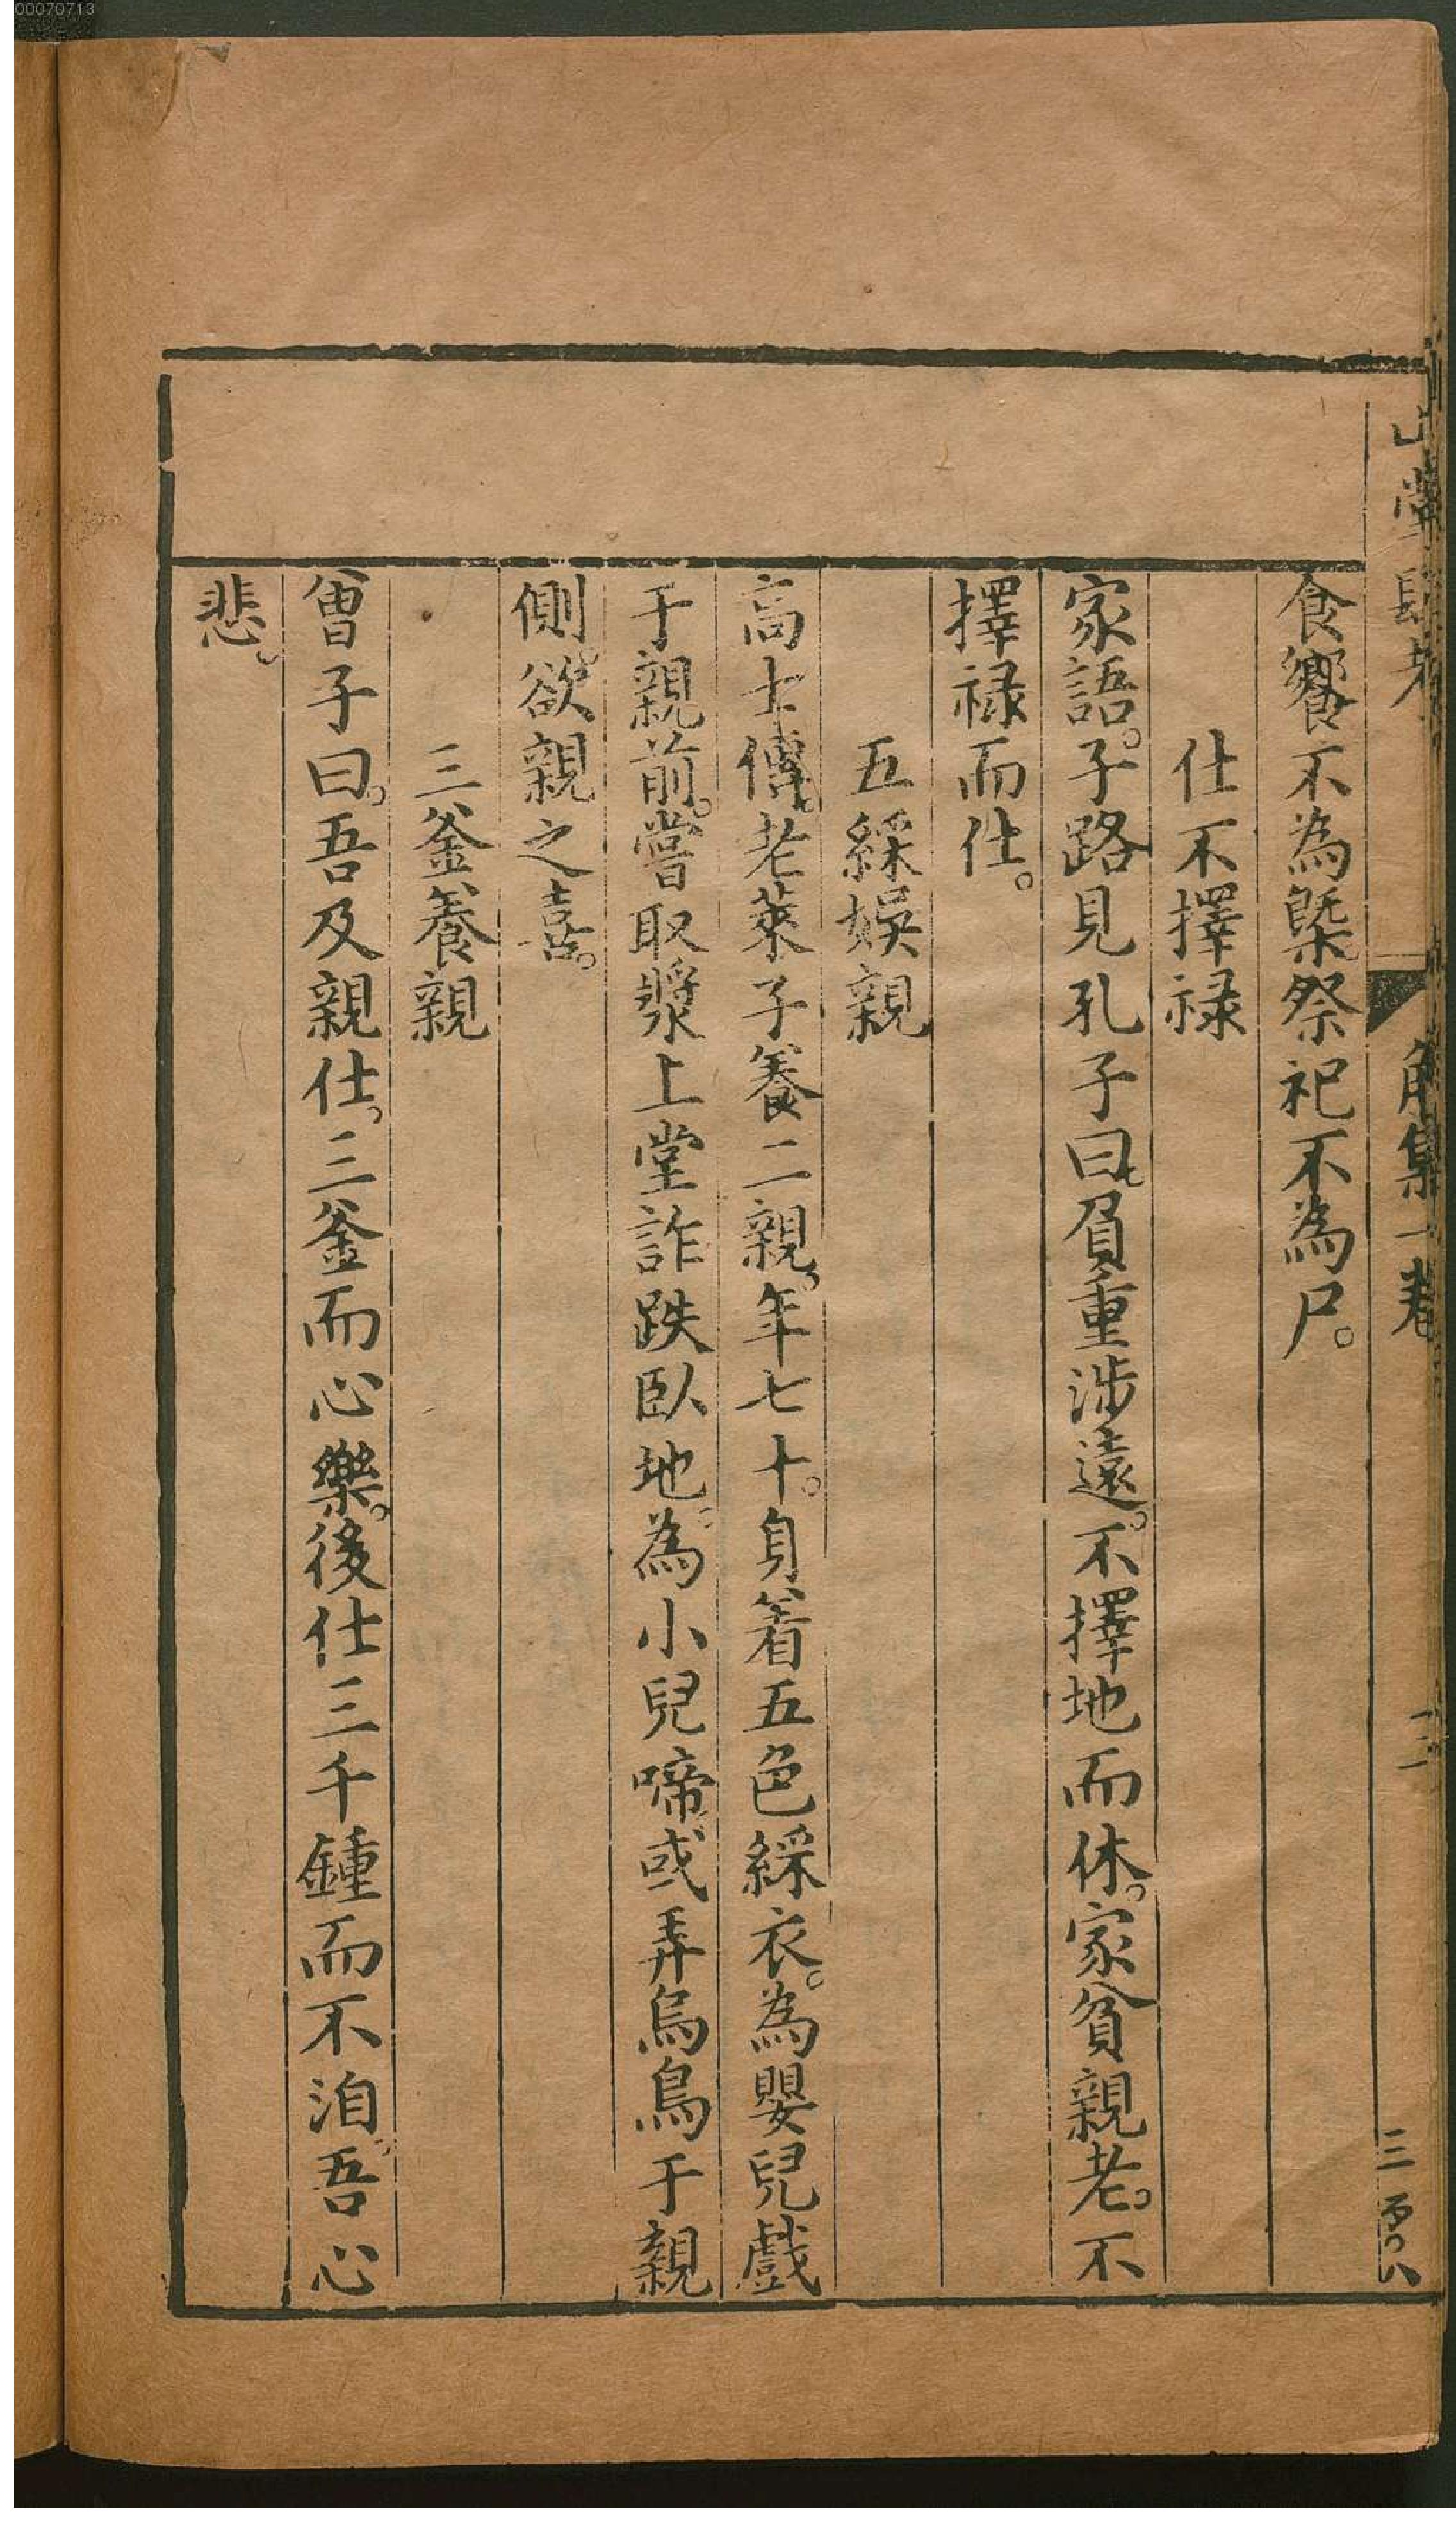 00070713
山堂肆考 角集一卷 三
食饗不為槩祭祀不為尸。
仕不擇祿
家語。子路見孔子曰。負重涉遠。不擇地而休。家貧親老。不
擇祿而仕。
五綵娛親
高士傳。老萊子養二親。年七十。身着五色綵衣。為嬰兒戲
于親前。嘗取漿上堂詐跌臥地。為小兒啼或弄烏鳥于親
側。欲親之喜。
三釜養親
曾子曰。吾及親仕。三釜而心樂。後仕三千鍾而不洎。吾心
悲。